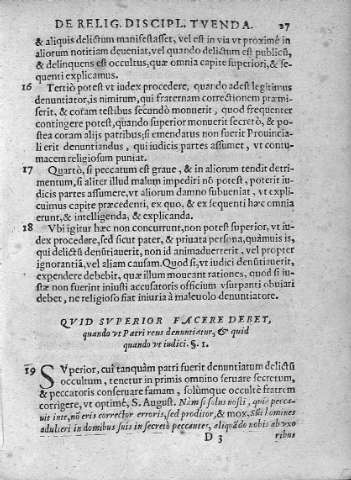 DE RELIG. DISCIPL. TVENDA. 27
& aliquis delictum manifestasset, vel est in via vt proximè in
aliorum notitiam deueniat, vel quando delictum est publicū,
& delinquens est occultus, quæ omnia capite superiori, & se-
quenti explicamus.
16 Tertiò potest vt iudex procedere, quando adest legitimus
denuntiator, is nimirum, qui fraternam correctionem præmi-
serit, & coram testibus secundò monuerit, quod frequenter
contingere potest, quando superior monuerit secretò, & po-
stea coram alijs patribus, si emendatus non fuerit Prouincia-
li erit denuntiandus, qui iudicis partes assumet, vt contu-
macem religiosum puniat.
17 Quartò, si peccatum est graue, & in aliorum tendit detri-
mentum, si aliter illud malum impediri nō potest, poterit iu-
dicis partes assumere, vt aliorum damno subueniat, vt expli-
cuimus capite præcedenti, ex quo, & ex sequenti hæc omnia
erunt, & intelligenda, & explicanda.
18 Vbi igitur hæc non concurrunt, non potest superior, vt iu-
dex procedere, sed sicut pater, & priuata persona, quāuis is,
qui delictū denūtiauerit, non id animaduerterit, vel propter
ignorantiā, vel aliam causam. Quod si, vt iudici denūtiauerit,
expendere debebit, quæ illum moueant rationes, quod si iu-
stæ non fuerint iniusti accusatoris officium vsurpanti obuiari
debet, ne religioso fiat iniuria à maleuolo denuntiatore.
QVID SVPERIOR FACERE DEBET,
quando vt Patri reus denuntiatur, & quid
quando vt iudici. §. 1.
19 SVperior, cui tanquàm patri fuerit denuntiatum delictū
occultum, tenetur in primis omnino seruare secretum,
& peccatoris conseruare famam, solùmque occultè fratrem
corrigere, vt optimè, S. August. Nam si solus nosti, quia pecca-
uit in te, nō eris corrector erroris, sed proditor, & mox. Sūt homines
adulteri in domibus suis in secretò peccantes, aliquādo nobis ab vxo
D 3 ribus